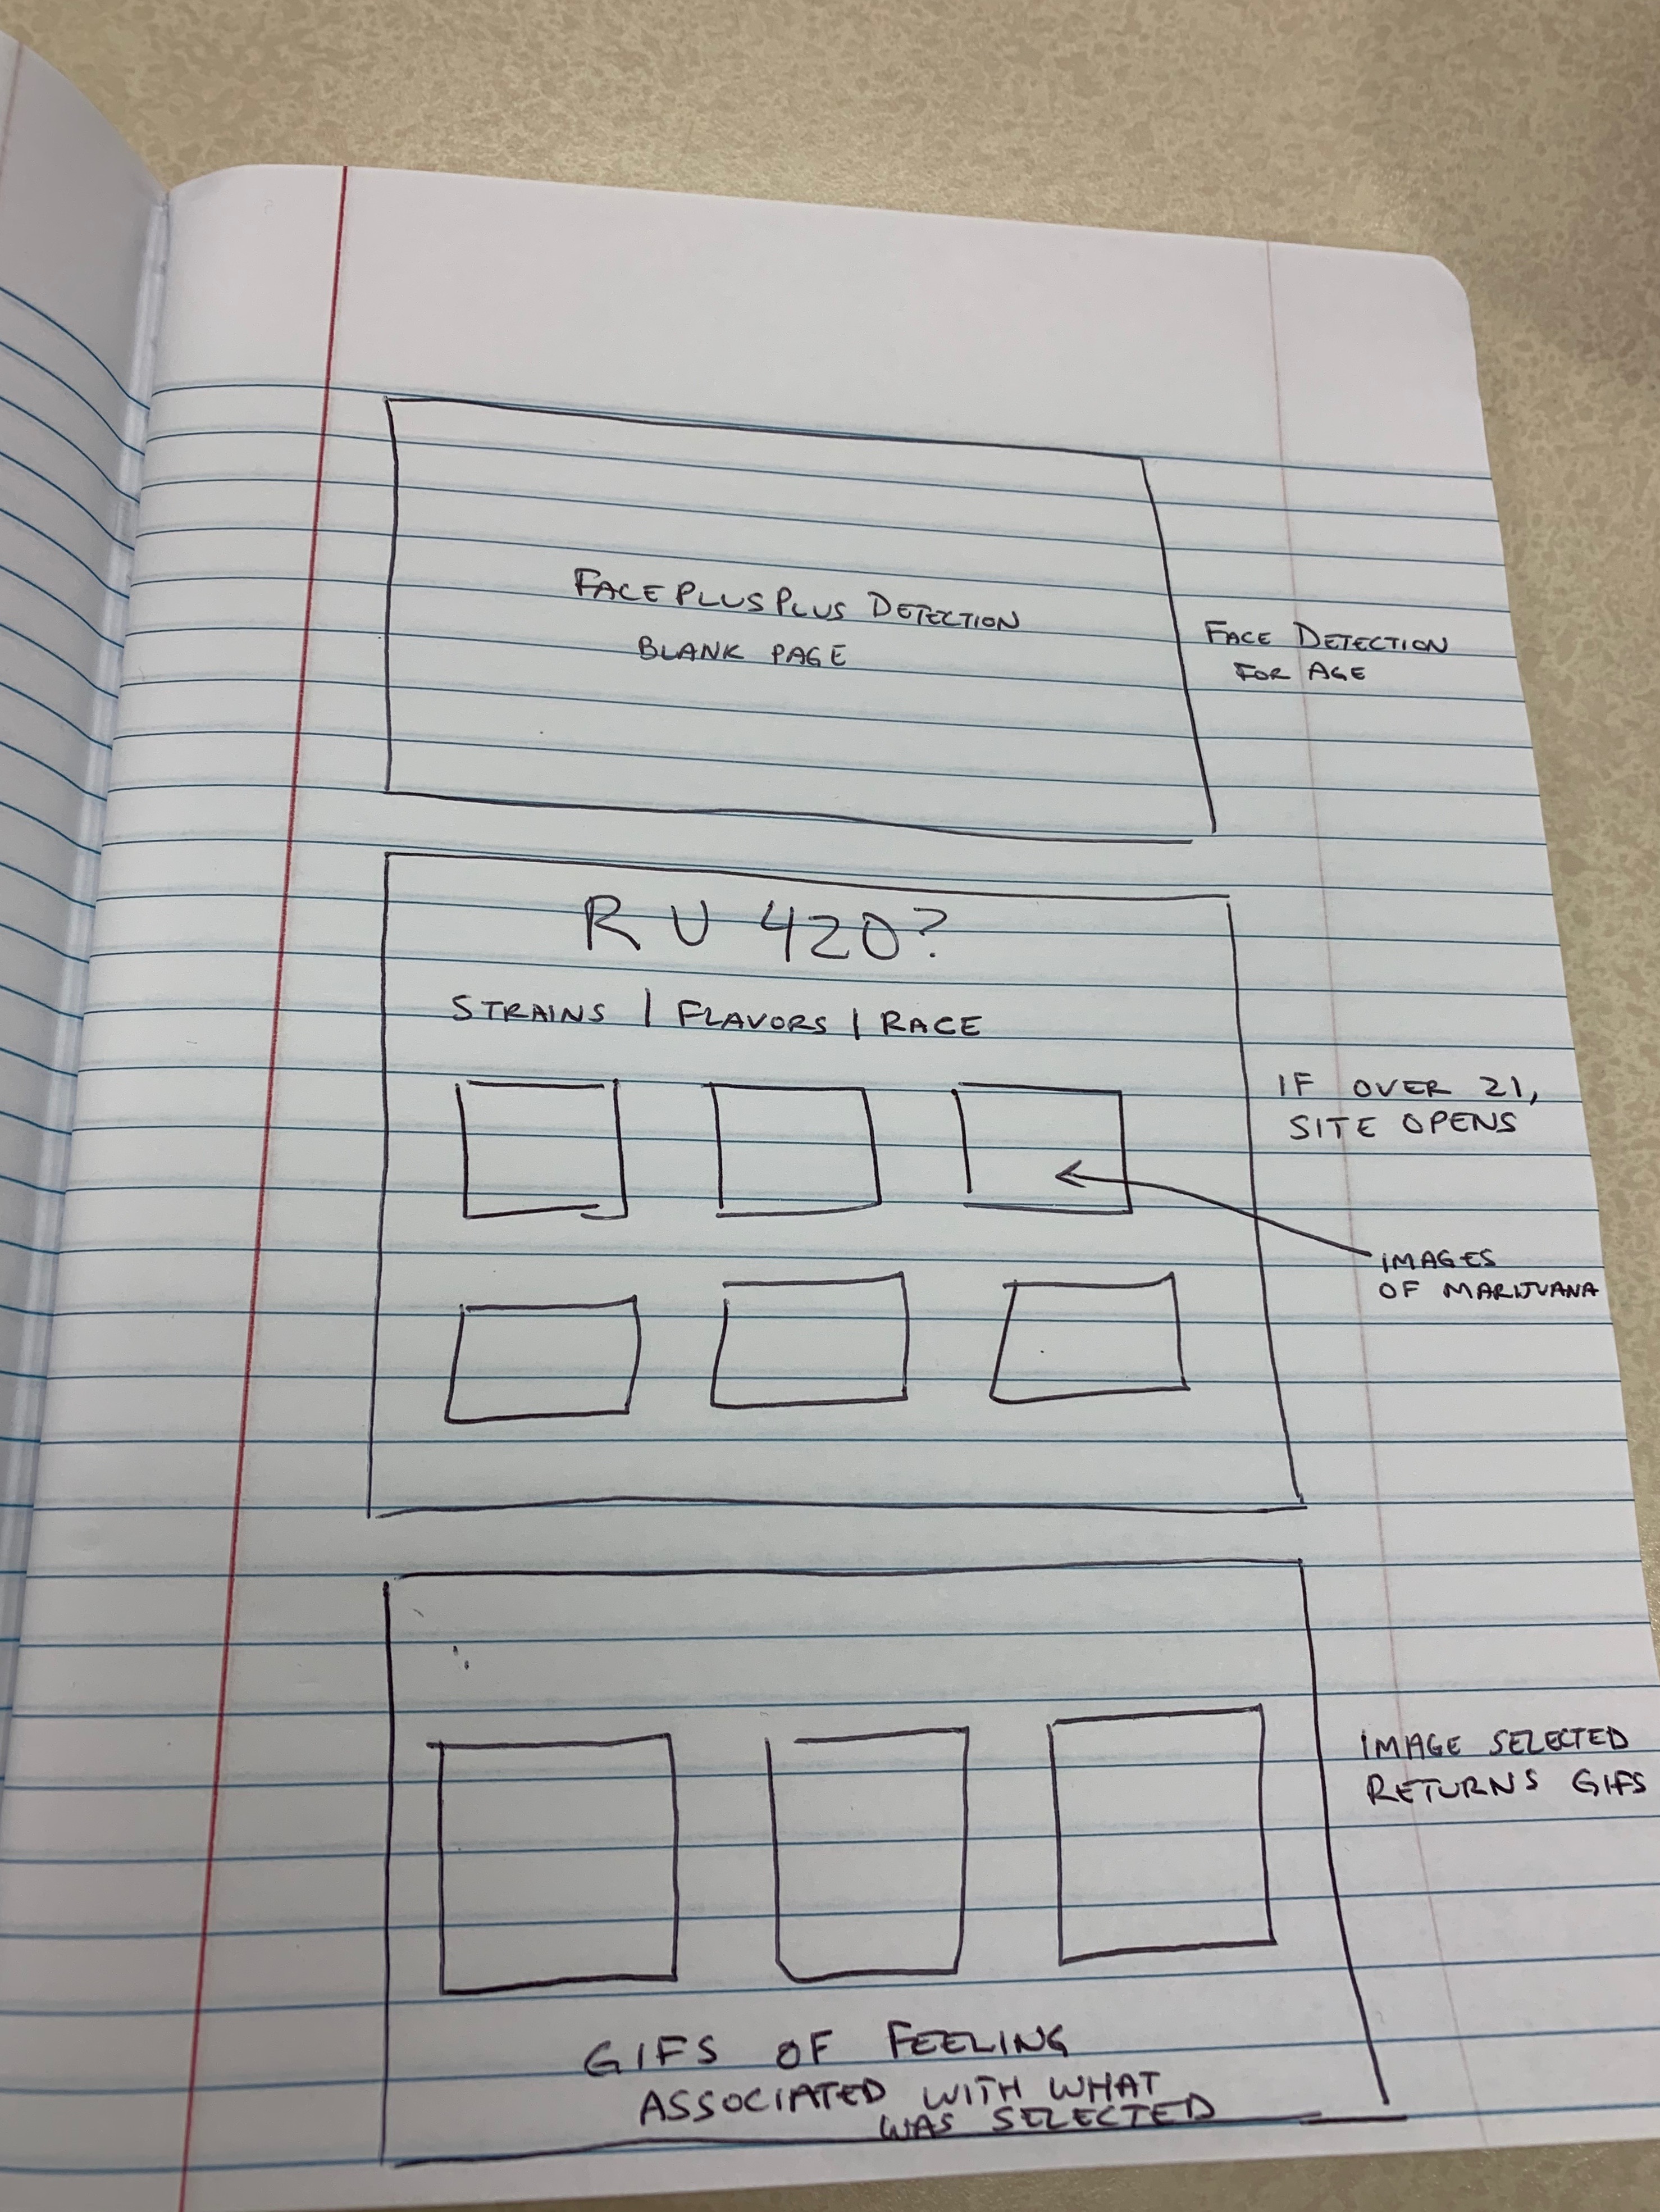 FACEPLUSPLUS DETECTION
BLANK PAGE
FACE DETECTION
FOR AGE
R U 420?
STRAINS | FLAVORS | RACE
IF OVER 21,
SITE OPENS
IMAGES
OF MARIJUANA
IMAGE SELECTED
RETURNS GIFS
GIFS OF FEELING
ASSOCIATED WITH WHAT
WAS SELECTED